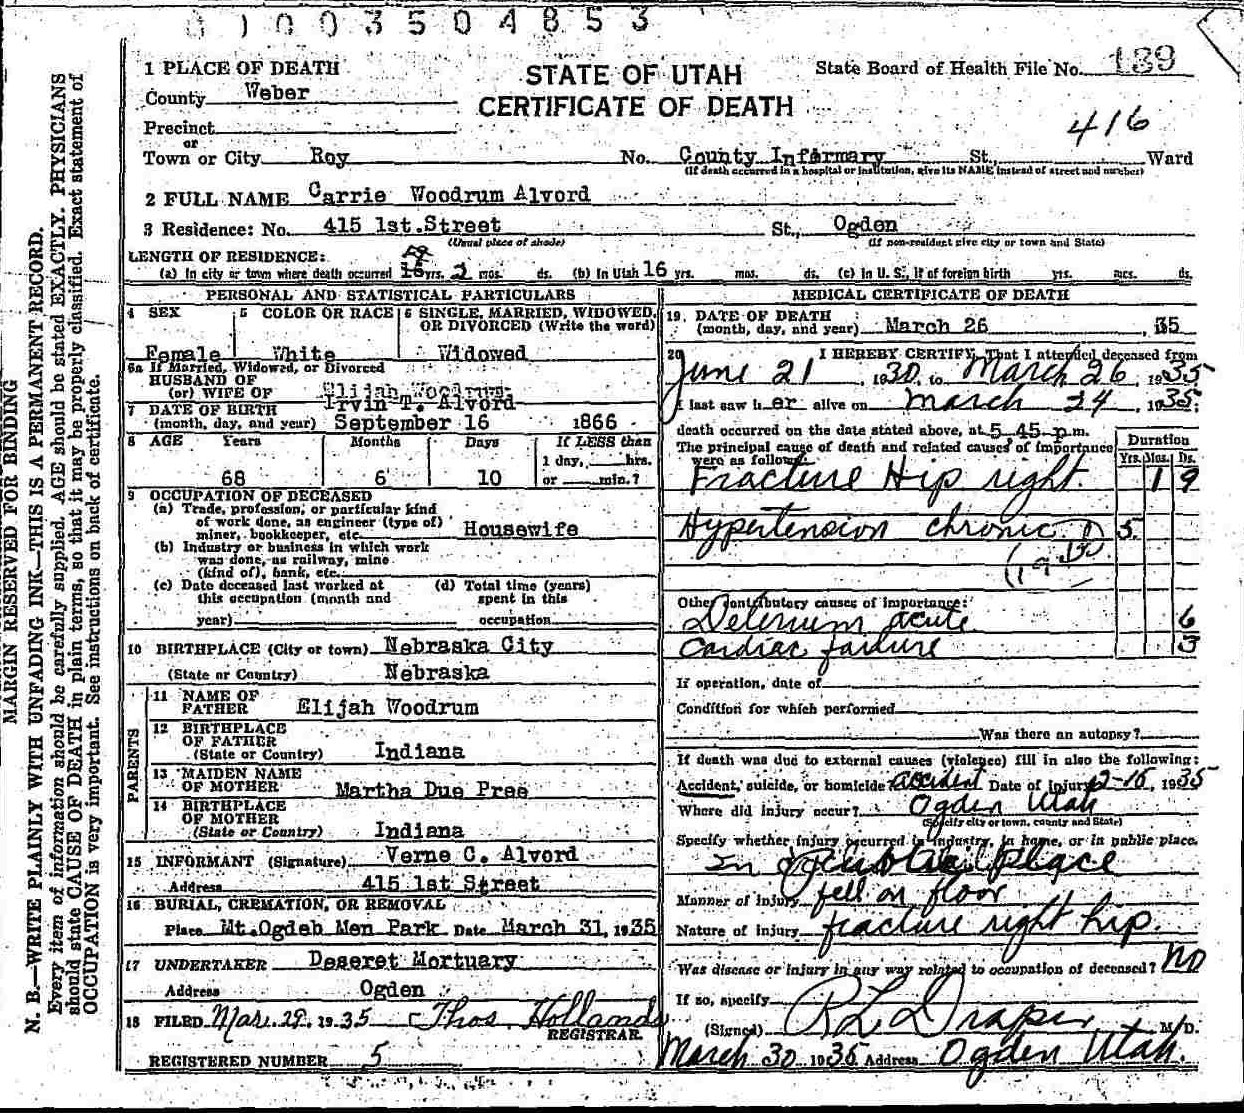 01003504853
1 PLACE OF DEATH
STATE OF UTAH
CERTIFICATE OF DEATH
State Board of Health File No. 139
County Weber
416
Precinct
or
Town or City Roy No. County Infermary St., Ward
(If death occurred in a hospital or institution, give its NAME instead of street and number)
2 FULL NAME Carrie Woodrum Alvord
3 Residence: No. 415 1st. Street St., Ogden
(Usual place of abode) (If non-resident give city or town and State)
LENGTH OF RESIDENCE:
(a) In city or town where death occurred yrs. 2 mos. ds. (b) In Utah 16 yrs. mos. ds. (c) In U. S., if of foreign birth yrs. mos. ds.
PERSONAL AND STATISTICAL PARTICULARS
4 SEX 5 COLOR OR RACE 6 SINGLE, MARRIED, WIDOWED, OR DIVORCED (Write the word)
Female White Widowed
6a If Married, Widowed, or Divorced
HUSBAND OF
(or) WIFE OF Elijah Woodrum
Irvin T. Alvord
7 DATE OF BIRTH
(month, day, and year) September 16 1866
8 AGE Years Months Days If LESS than
1 day, hrs.
68 6 10 or min.?
9 OCCUPATION OF DECEASED
(a) Trade, profession, or particular kind
of work done, as engineer (type of)
miner, bookkeeper, etc. Housewife
(b) Industry or business in which work
was done, as railway, mine
(kind of), bank, etc.
(c) Date deceased last worked at (d) Total time (years)
this occupation (month and spent in this
year) occupation
10 BIRTHPLACE (City or town) Nebraska City
(State or Country) Nebraska
PARENTS
11 NAME OF
FATHER Elijah Woodrum
12 BIRTHPLACE
OF FATHER
(State or Country) Indiana
13 MAIDEN NAME
OF MOTHER Martha Due Pree
14 BIRTHPLACE
OF MOTHER
(State or Country) Indiana
15 INFORMANT (Signature) Verne C. Alvord
Address 415 1st Street
16 BURIAL, CREMATION, OR REMOVAL
Place Mt.Ogdeb Men Park Date March 31, 1935
17 UNDERTAKER Deseret Mortuary
Address Ogden
18 FILED Mar. 29, 1935 Thos. Hollands
REGISTRAR
REGISTERED NUMBER 5
MEDICAL CERTIFICATE OF DEATH
19. DATE OF DEATH
(month, day, and year) March 26, 35
20 I HEREBY CERTIFY, That I attended deceased from
June 21, 1930, to March 26, 1935
I last saw h er alive on March 24, 1935;
death occurred on the date stated above, at 5 45 p.m.
The principal cause of death and related causes of importance
were as follows: Duration
Yrs. Mos. Ds.
Fracture Hip right. 1 9
Hypertension chronic 5
Other contributory causes of importance:
Delerium acute 6
Cardiac failure 3
If operation, date of
Condition for which performed
Was there an autopsy?
If death was due to external causes (violence) fill in also the following:
Accident, suicide, or homicide accident Date of injury 2-15, 1935
Where did injury occur? Ogden Utah
(Specify city or town, county and State)
Specify whether injury occurred in industry, in home, or in public place.
In Public Place
Manner of injury fell on floor
Nature of injury fracture right hip.
Was disease or injury in any way related to occupation of deceased? NO
If so, specify
(Signed) R L Draper M. D.
March 30 1935 Address Ogden Utah.
MARGIN RESERVED FOR BINDING
N. B.—WRITE PLAINLY WITH UNFADING INK—THIS IS A PERMANENT RECORD.
Every item of information should be carefully supplied. AGE should be stated EXACTLY. PHYSICIANS
should state CAUSE OF DEATH in plain terms, so that it may be properly classified. Exact statement of
OCCUPATION is very important. See instructions on back of certificate.